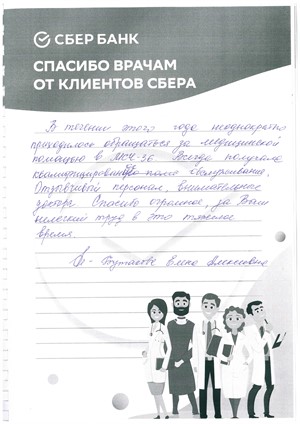 СБЕР БАНК
СПАСИБО ВРАЧАМ
ОТ КЛИЕНТОВ СБЕРА
В течении этого года неоднократно
приходилось обращаться за медицинской
помощью в МСЧ-36. Всегда получала
квалифицированное
Отзывчивый персонал, внимательные
доктора. Спасибо огромное, за Ваш
нелегкий труд в это тяжелое
время.